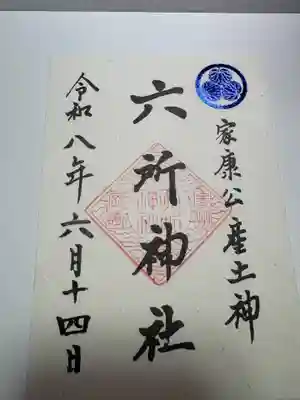 家康公産土神
六所神社
令和八年六月十四日